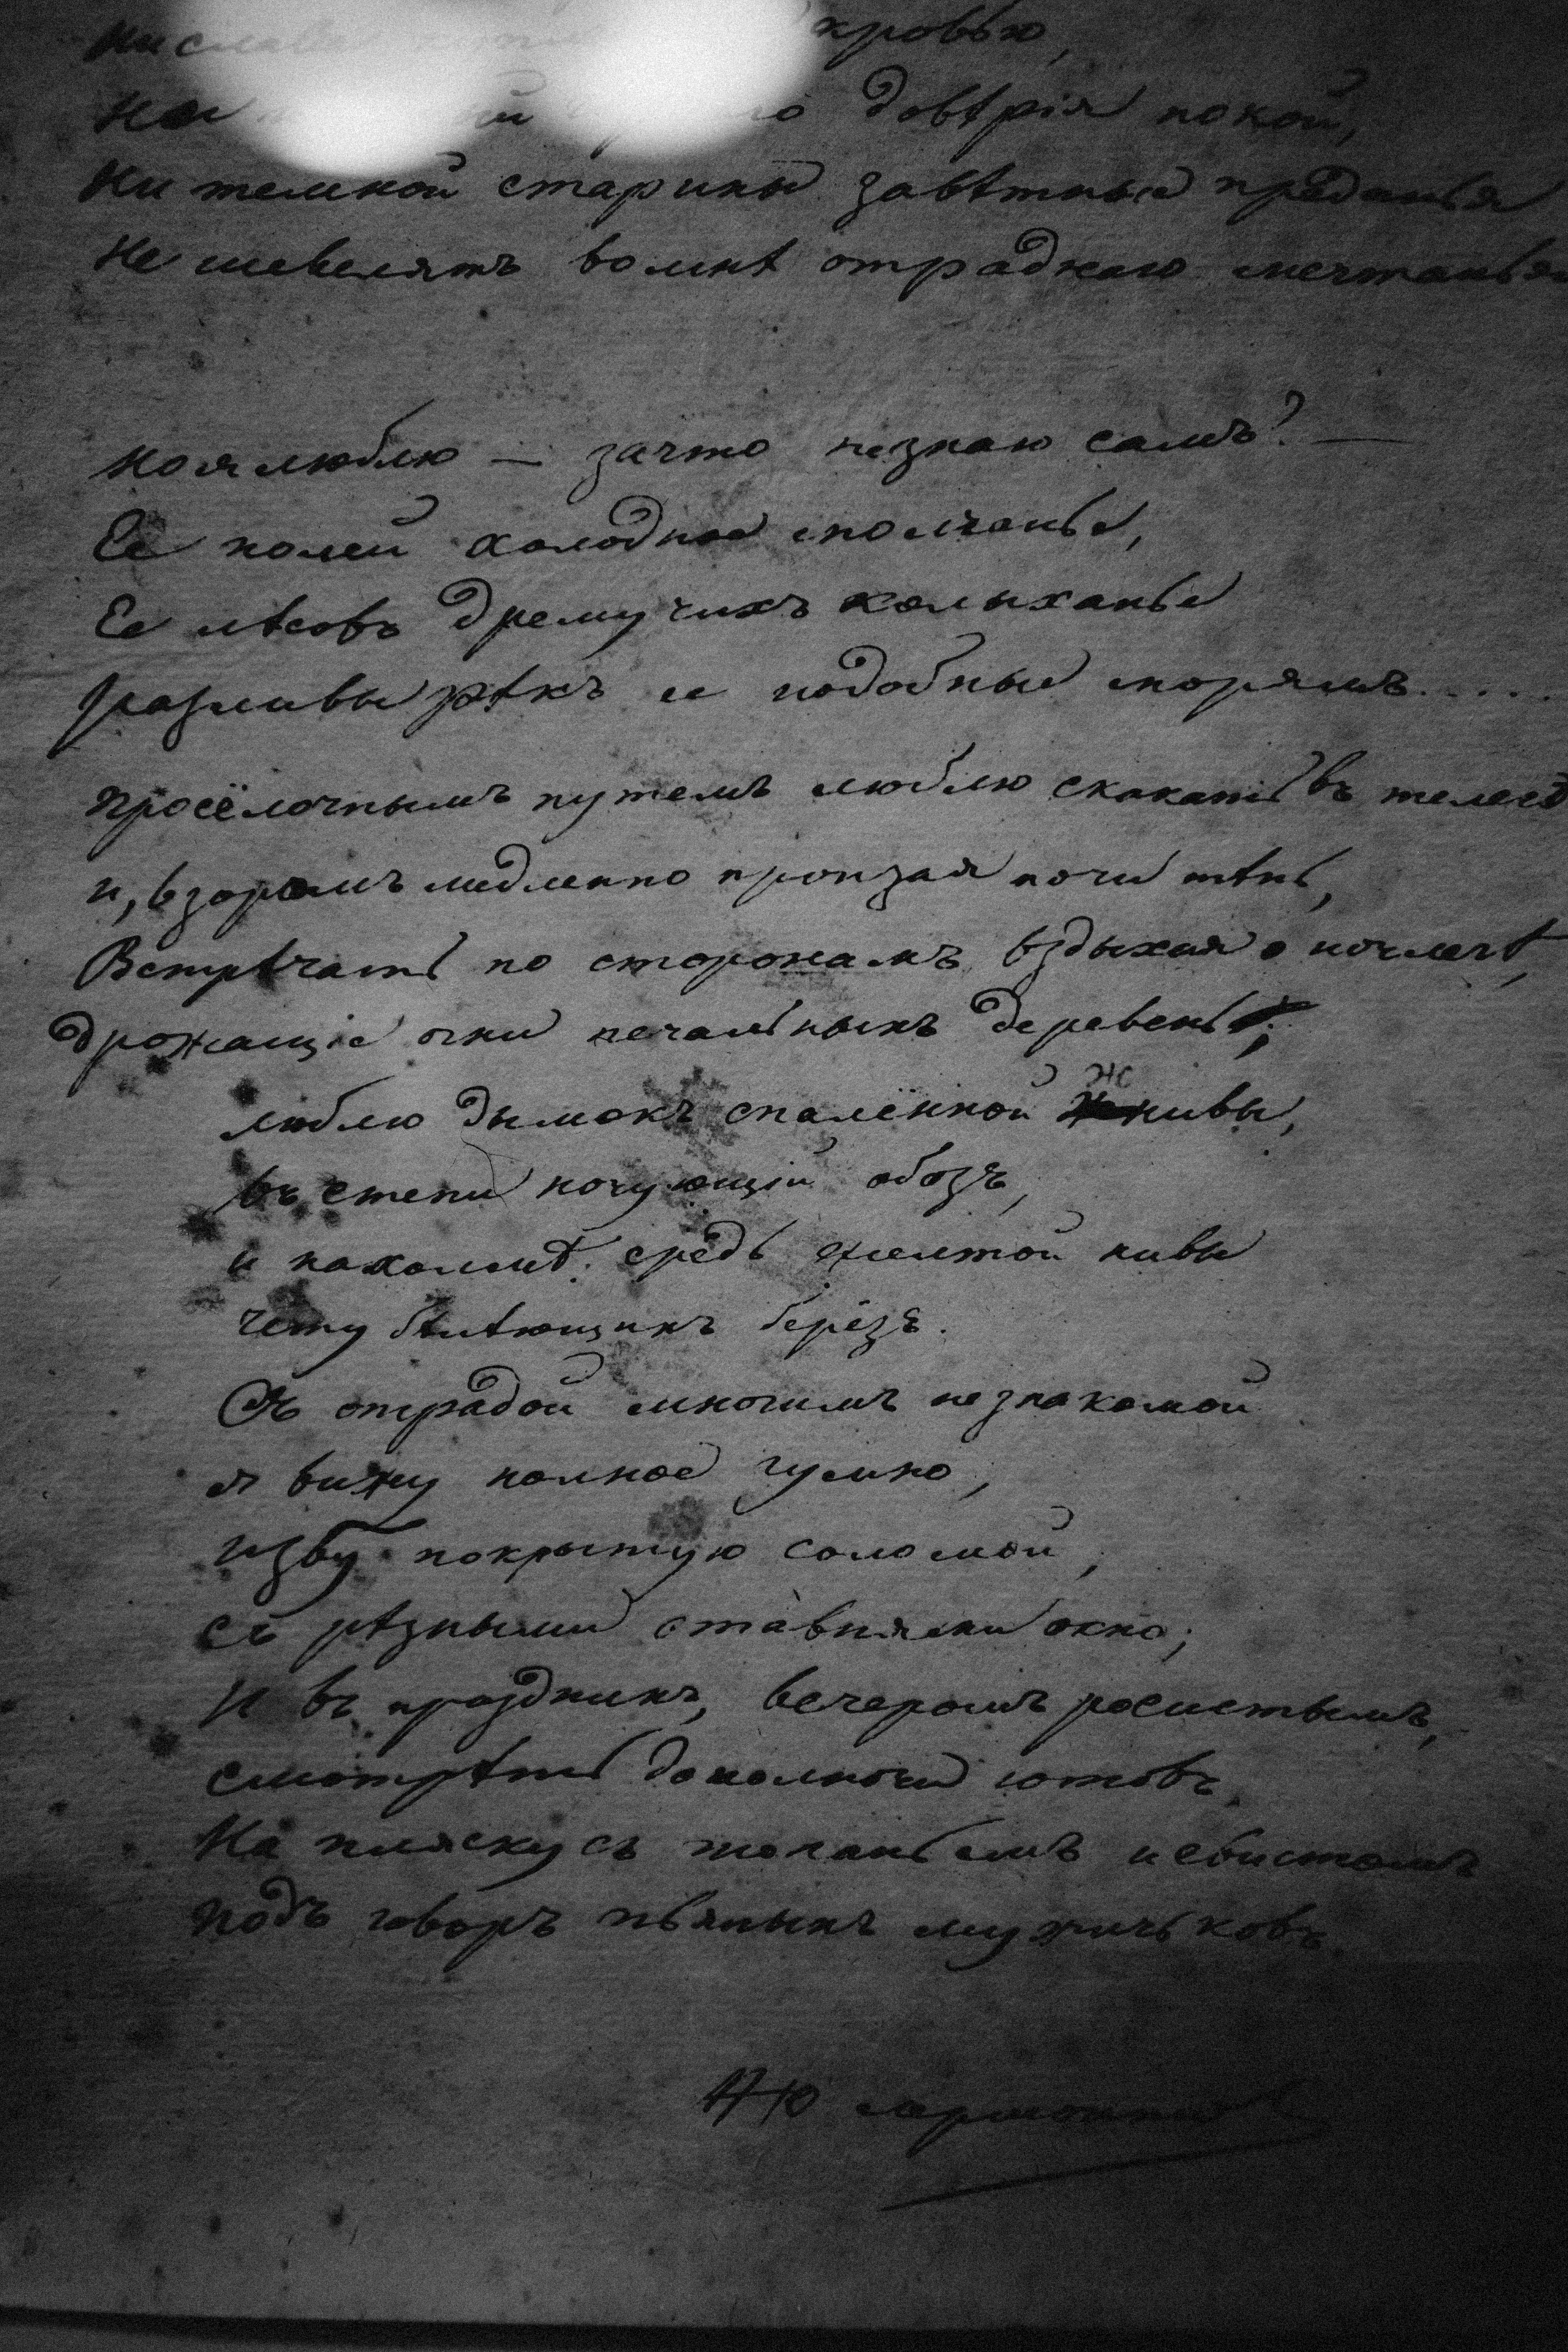 кровью,
довѣрія покой,
Ни темной старины завѣтныя преданья
Не шевелятъ во мнѣ отраднаго мечтанья
Но я люблю — за что не знаю самъ? —
Ее полей холодное молчанье,
Ее лѣсовъ дремучихъ колыханье
разливы рѣкъ ее подобные морямъ.....
просёлочнымъ путемъ люблю скакать въ телегѣ
и, взоромъ медленно пронзая ночи тѣнь,
Встрѣчать по сторонамъ, вздыхая о ночлегѣ,
дрожащіе огни печальныхъ деревень;
люблю дымокъ спалённой жнивы,
въ степи ночующій обозъ,
и на холмѣ, средь желтой нивы
чету бѣлѣющихъ берёзъ.
Съ отрадой многимъ незнакомой
я вижу полное гумно,
избу покрытую соломой,
съ рѣзными ставнями окно;
И въ праздникъ, вечеромъ росистымъ,
смотрѣть до полночи готовъ
На пляску съ топаньемъ и свистомъ
подъ говоръ пьяныхъ мужичьковъ